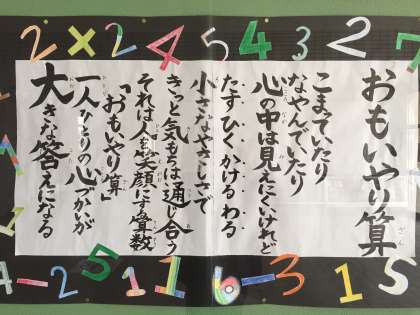 2×2 4 5 4 3 2 7
おもいやり算
ざん
こまっていたり
なやんでいたり
心の中は見えにくいけれど
たす ひく かける わる
小さなやさしさで
きっと気もちは通じ合う
それは人を笑顔にする算数
「おもいやり算」
一人ひとりの心づかいが
大きな答えになる
4-25 1 1 6-3 1 5